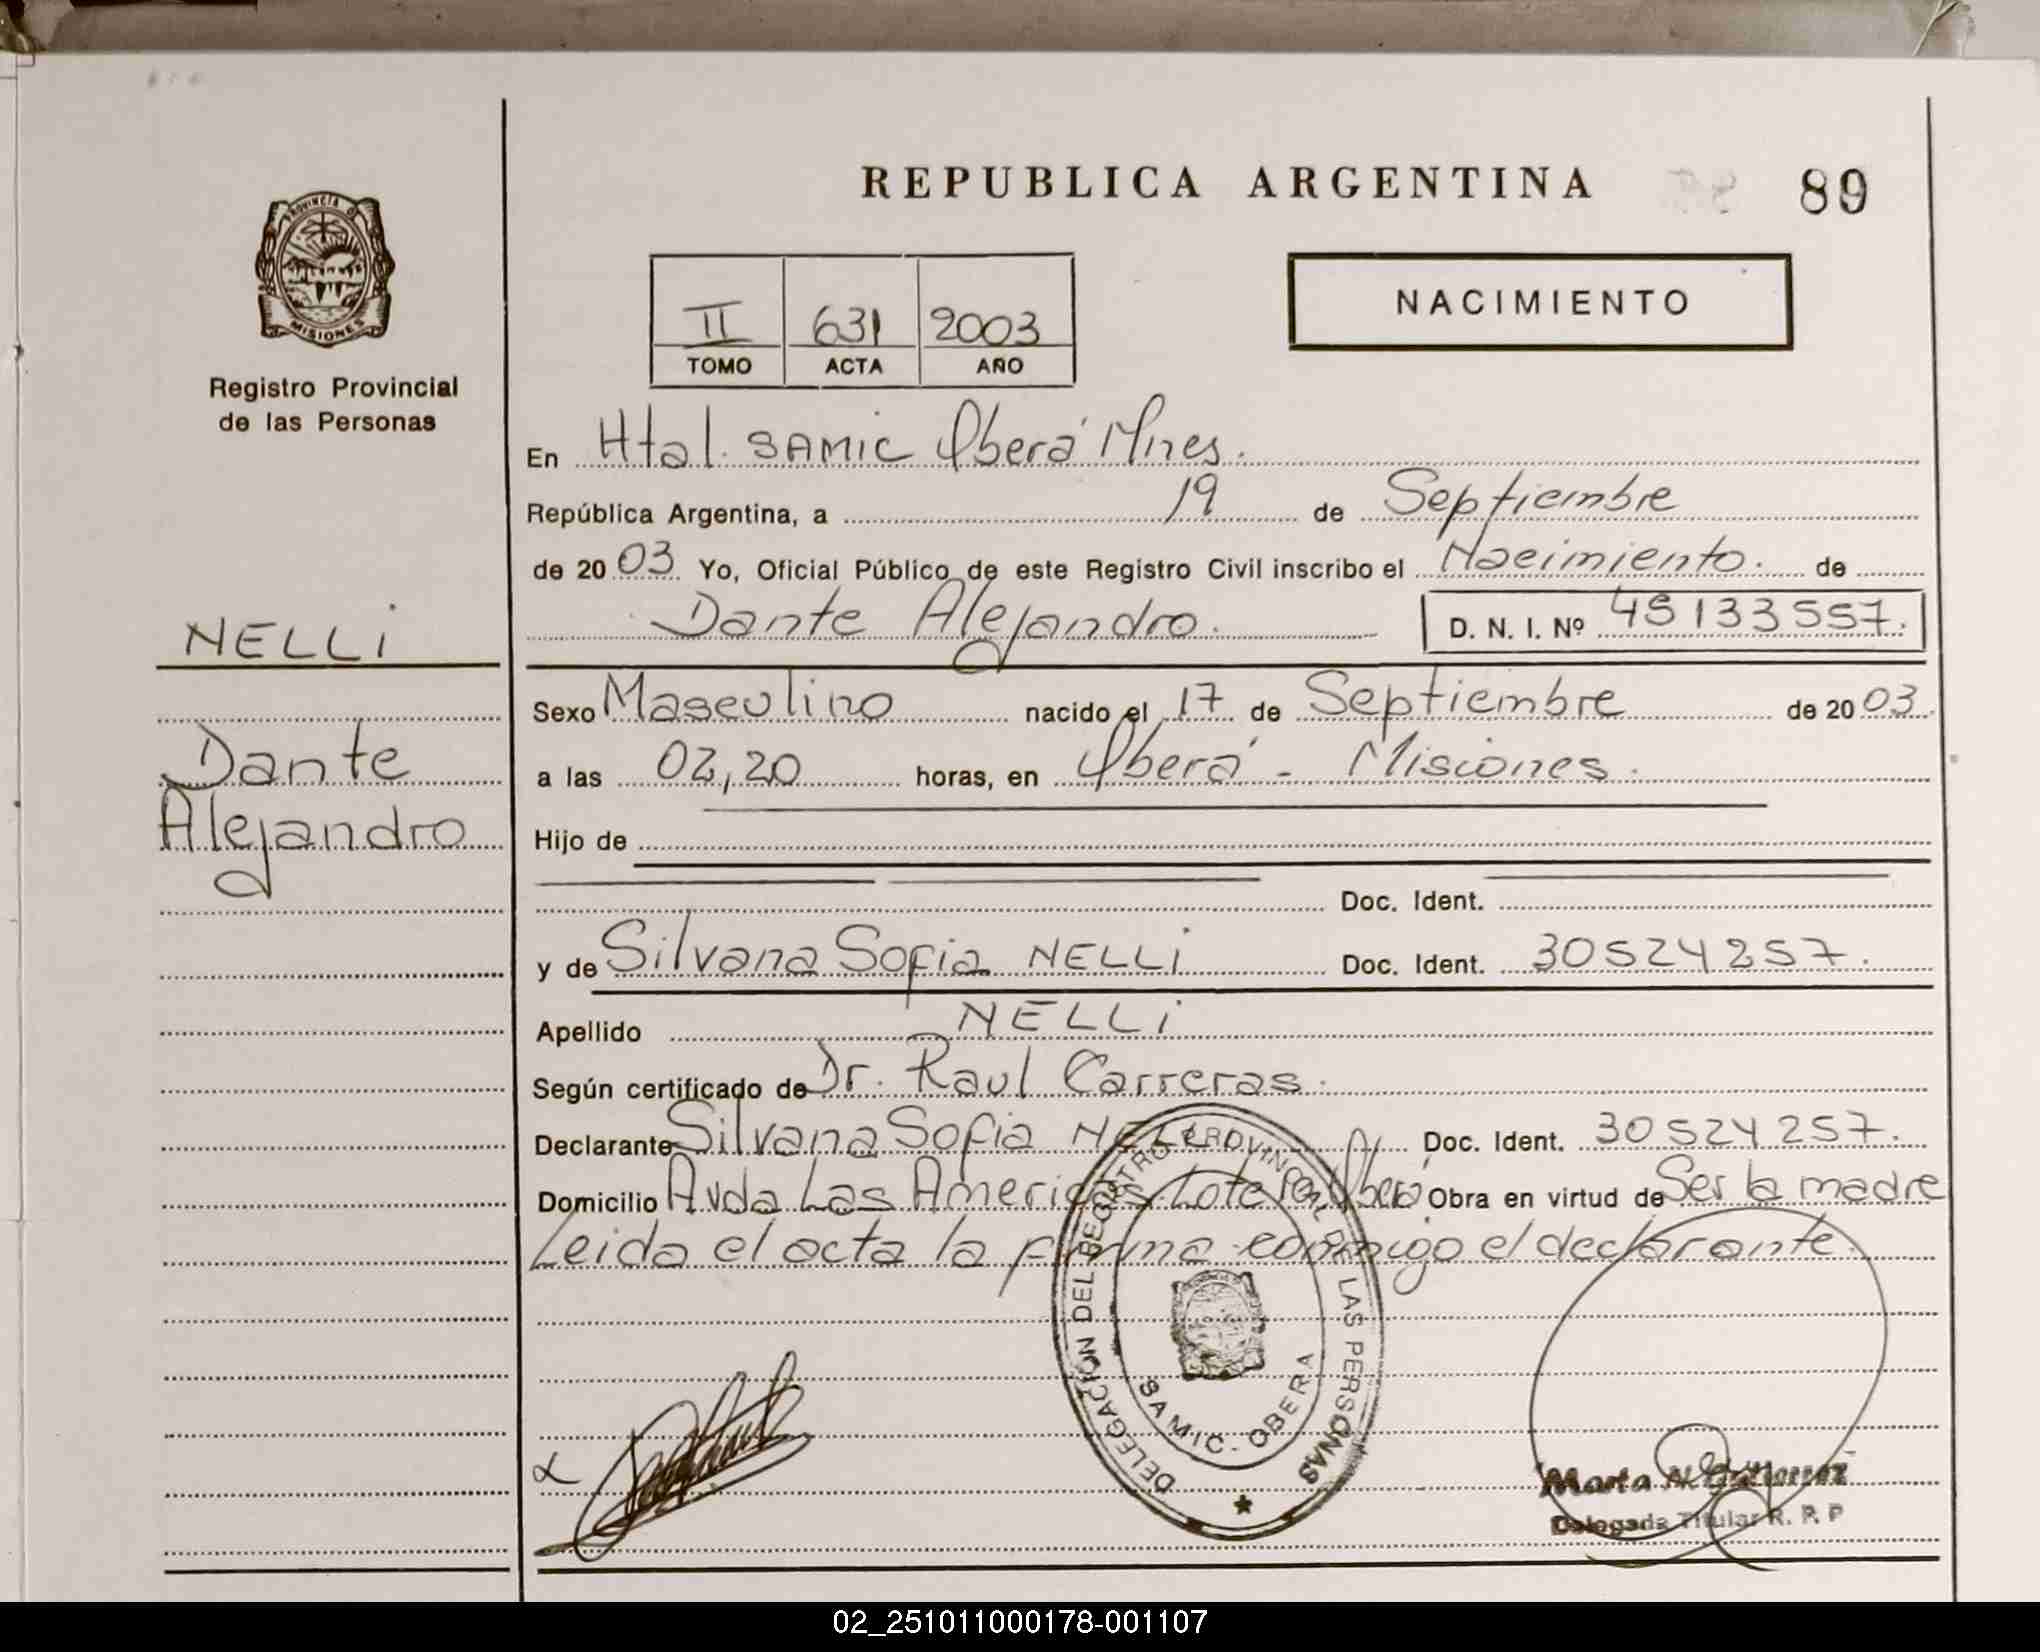 REPUBLICA ARGENTINA
89
PROVINCIA DE
MISIONES
Registro Provincial
de las Personas
II 631 2003
TOMO ACTA AÑO
NACIMIENTO
En Htal. SAMIC Oberá Mnes.
República Argentina, a 19 de Septiembre
de 2003 Yo, Oficial Público de este Registro Civil inscribo el Nacimiento. de
Dante Alejandro. D. N. I. Nº 45133557.
NELLi
Dante
Alejandro
Sexo Masculino nacido el 17 de Septiembre de 2003
a las 02,20 horas, en Oberá - Misiones.
Hijo de
Doc. Ident.
y de Silvana Sofia NELLi Doc. Ident. 30524257.
Apellido NELLi
Según certificado de Dr. Raul Carreras.
Declarante Silvana Sofia NELLi Doc. Ident. 30524257.
Domicilio Avda Las Americas Lote Oberá Obra en virtud de Ser la madre
Leida el acta la firma conmigo el declarante.
DELEGACION DEL REGISTRO PROVINCIAL DE LAS PERSONAS
SAMIC - OBERA
Marta N. Gutierrez
Delegada Titular R. P. P
02_251011000178-001107